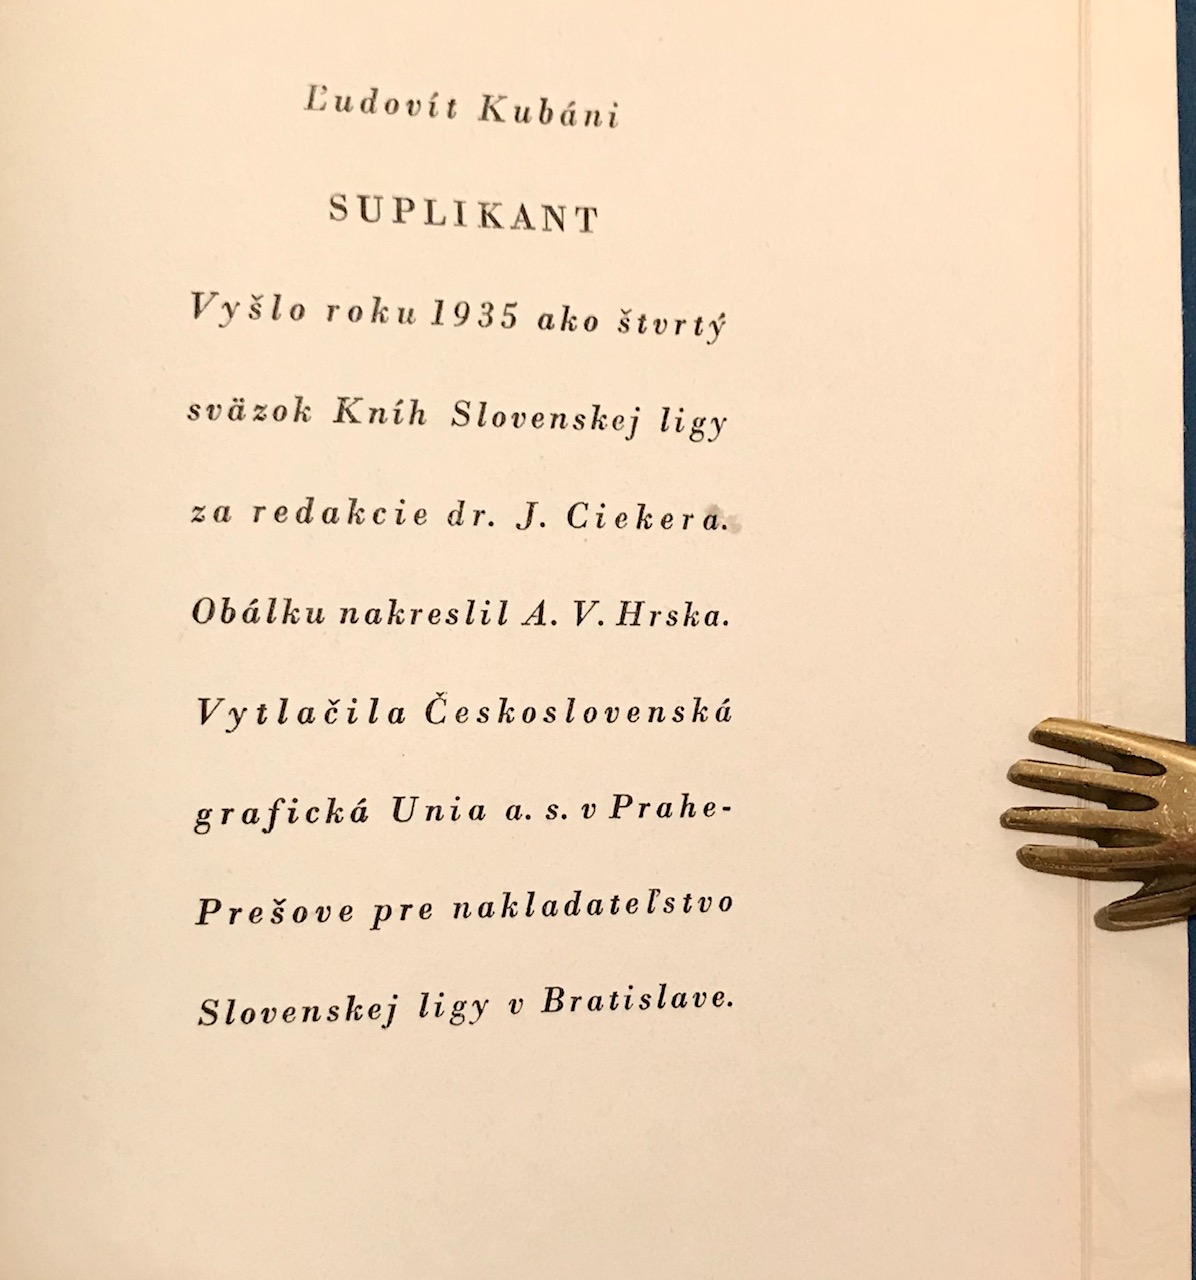 Ľudovít Kubáni
SUPLIKANT
Vyšlo roku 1935 ako štvrtý
sväzok Kníh Slovenskej ligy
za redakcie dr. J. Ciekera.
Obálku nakreslil A. V. Hrska.
Vytlačila Československá
grafická Unia a. s. v Prahe-
Prešove pre nakladateľstvo
Slovenskej ligy v Bratislave.